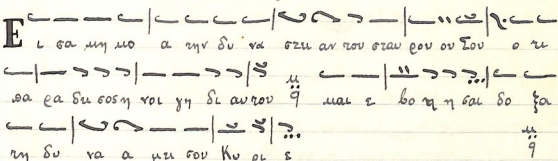 Ε ι σα κη κο α την δυ να στει αν του σταυ ρου ου Σου ο τι
πα ρα δει σος η νοι γη δι αυτου και ε βο η η σα δο ξα
τη δυ να α μει σου Κυ ρι ε